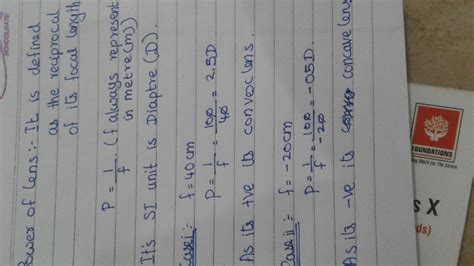 Power of lens :- It is defined
as the reciprocal
of its focal length
P = 1/f (f always represent
in metre(m))
It's SI unit is Diaptre (D).
Case i :- f = 40cm
P = 1/f = 100/40 = 2.5D
As its +ve its convex lens.
Case ii :- f = -20cm
P = 1/f = 100/-20 = -05D.
As its -ve its concave lens
FOUNDATIONS
s X
ds)